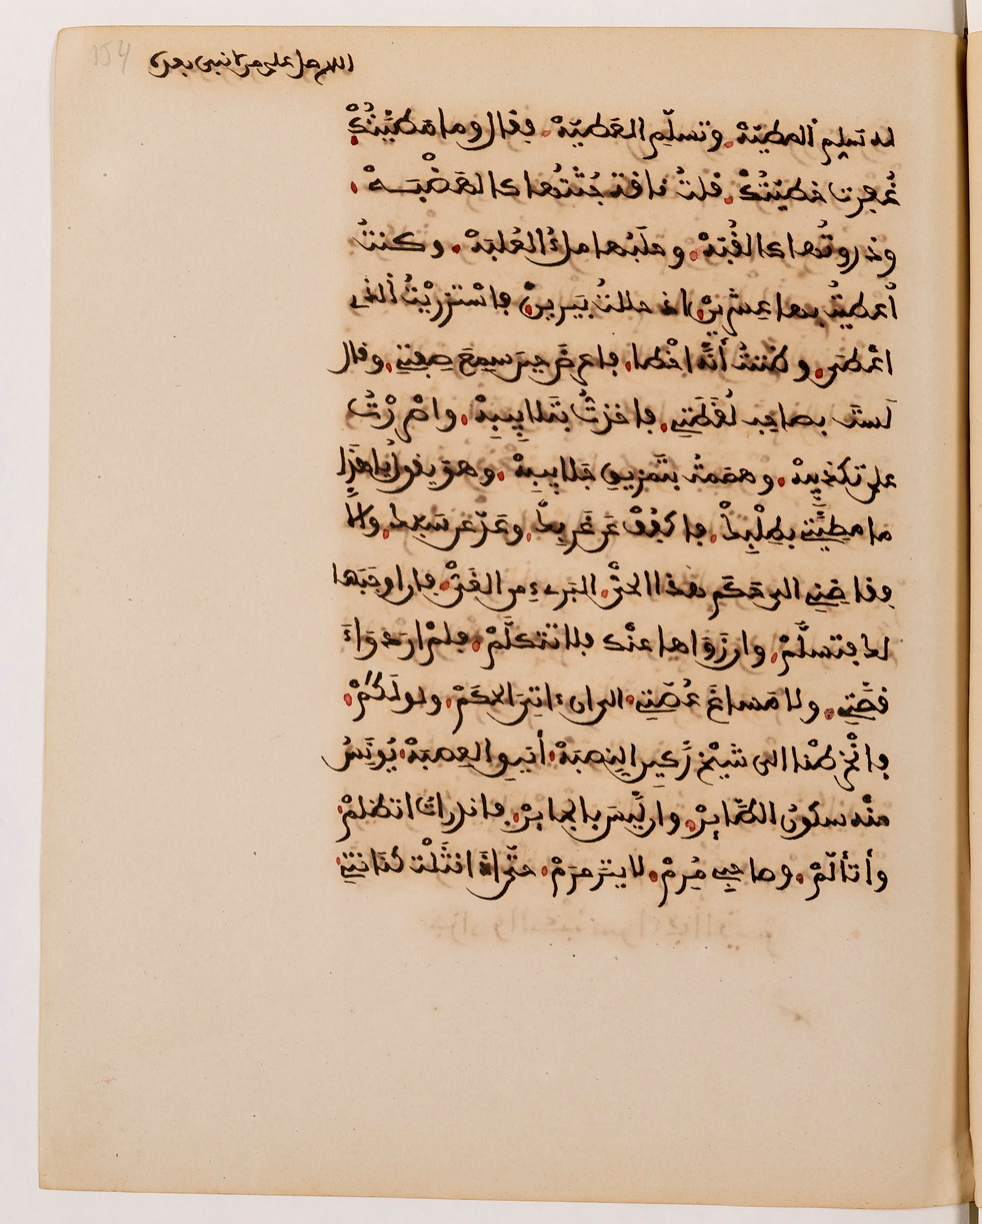 اللهم صل على من لا نبي بعده
له تسلم المطيّهْ. وتسلّم العَطيّهْ. فقال وما مَطيَّتُكْ
غُفرت خطيّتُكْ. قلتُ ناقة جُثّتُها كالهَضْبَهْ.
وذروتُها كالقُبّهْ. وحلَبُها ملءُ العُلبَهْ. وكنتُ
أعطيتُ بها عِشرينْ. اذ حللتُ يَبرينْ. فاسْتزدْتُ الذي
اعْطى. وظننتُ أنّهُ اخْطا. فاعرَضَ حينَ سمعَ صِفَتِي. وقال
لَستَ بصاحِبِ لُقَطَتِي. فاخذتُ بتَلابِيبِهْ. واصْررْتُ
على تكذِيبِهْ. وهمَمتُ بتَمزيقِ جَلابِيبِهْ. وهوَ يقولُ يا هذَا
ما مطيَّتِي بِطِلْبِكْ. فاكفُفْ عَن غَربِكْ. وعَدِّ عن سَبّكْ. والّا
فقاضِنِي الى حَكَمِ هذا الحيّْ. البَرِءِ من الغَيّْ. فان اوجَبَها
لك فتسلَّمْ. وان زَوَاها عنْك فلا تتكلَّمْ. فلمْ ار دَوَاءَ
قصَّتِي. ولا مَساغَ غُصّتِي. الا ان ءاتِيَ الحكَمْ. ولو لَكَمْ.
فانْخرطْنا الى شيْخٍ رَكينِ النِصبَهْ. أنيقِ العِصبَهْ. يُونَسُ
منْه سكونُ الطّايرْ. وان ليْسَ بالجايرْ. فاندرات اتظلمْ
وأتألّمْ. وصاحبِي مُرِمٌّ. لا يترمرَمْ. حتّى اذَا انتَثَلْت كنَانتِي.